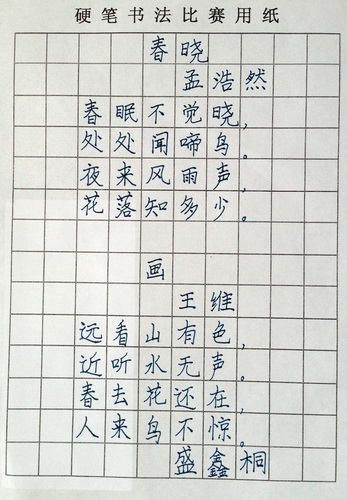 硬笔书法比赛用纸
春晓
孟浩然
春眠不觉晓，
处处闻啼鸟。
夜来风雨声，
花落知多少。
画
王维
远看山有色，
近听水无声。
春去花还在，
人来鸟不惊。
盛鑫桐